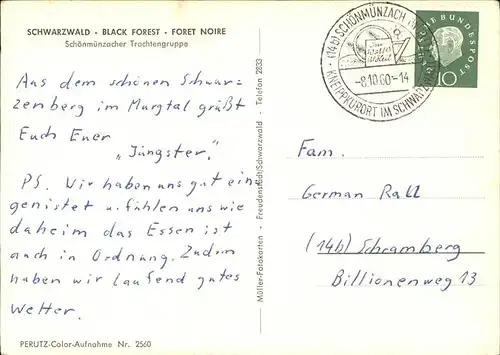 SCHWARZWALD · BLACK FOREST · FORET NOIRE
Schönmünzacher Trachtengruppe
Aus dem schönen Schwar=
zenberg im Murgtal grüßt
Euch Euer
"Jüngster."
PS. Wir haben uns gut ein
genistet u. fühlen uns wie
daheim das Essen ist
auch in Ordnung. Zudem
haben wir laufend gutes
Wetter.
PERUTZ-Color-Aufnahme Nr. 2560
Müller-Fotokarten · Freudenstadt/Schwarzwald · Telefon 2833
(14b) SCHÖNMÜNZACH
-8.10.60-14
KNEIPPKURORT IM SCHWARZWALD
DEUTSCHE BUNDESPOST
10
Fam.
German Rall
(14b) Schramberg
Billionenweg 13